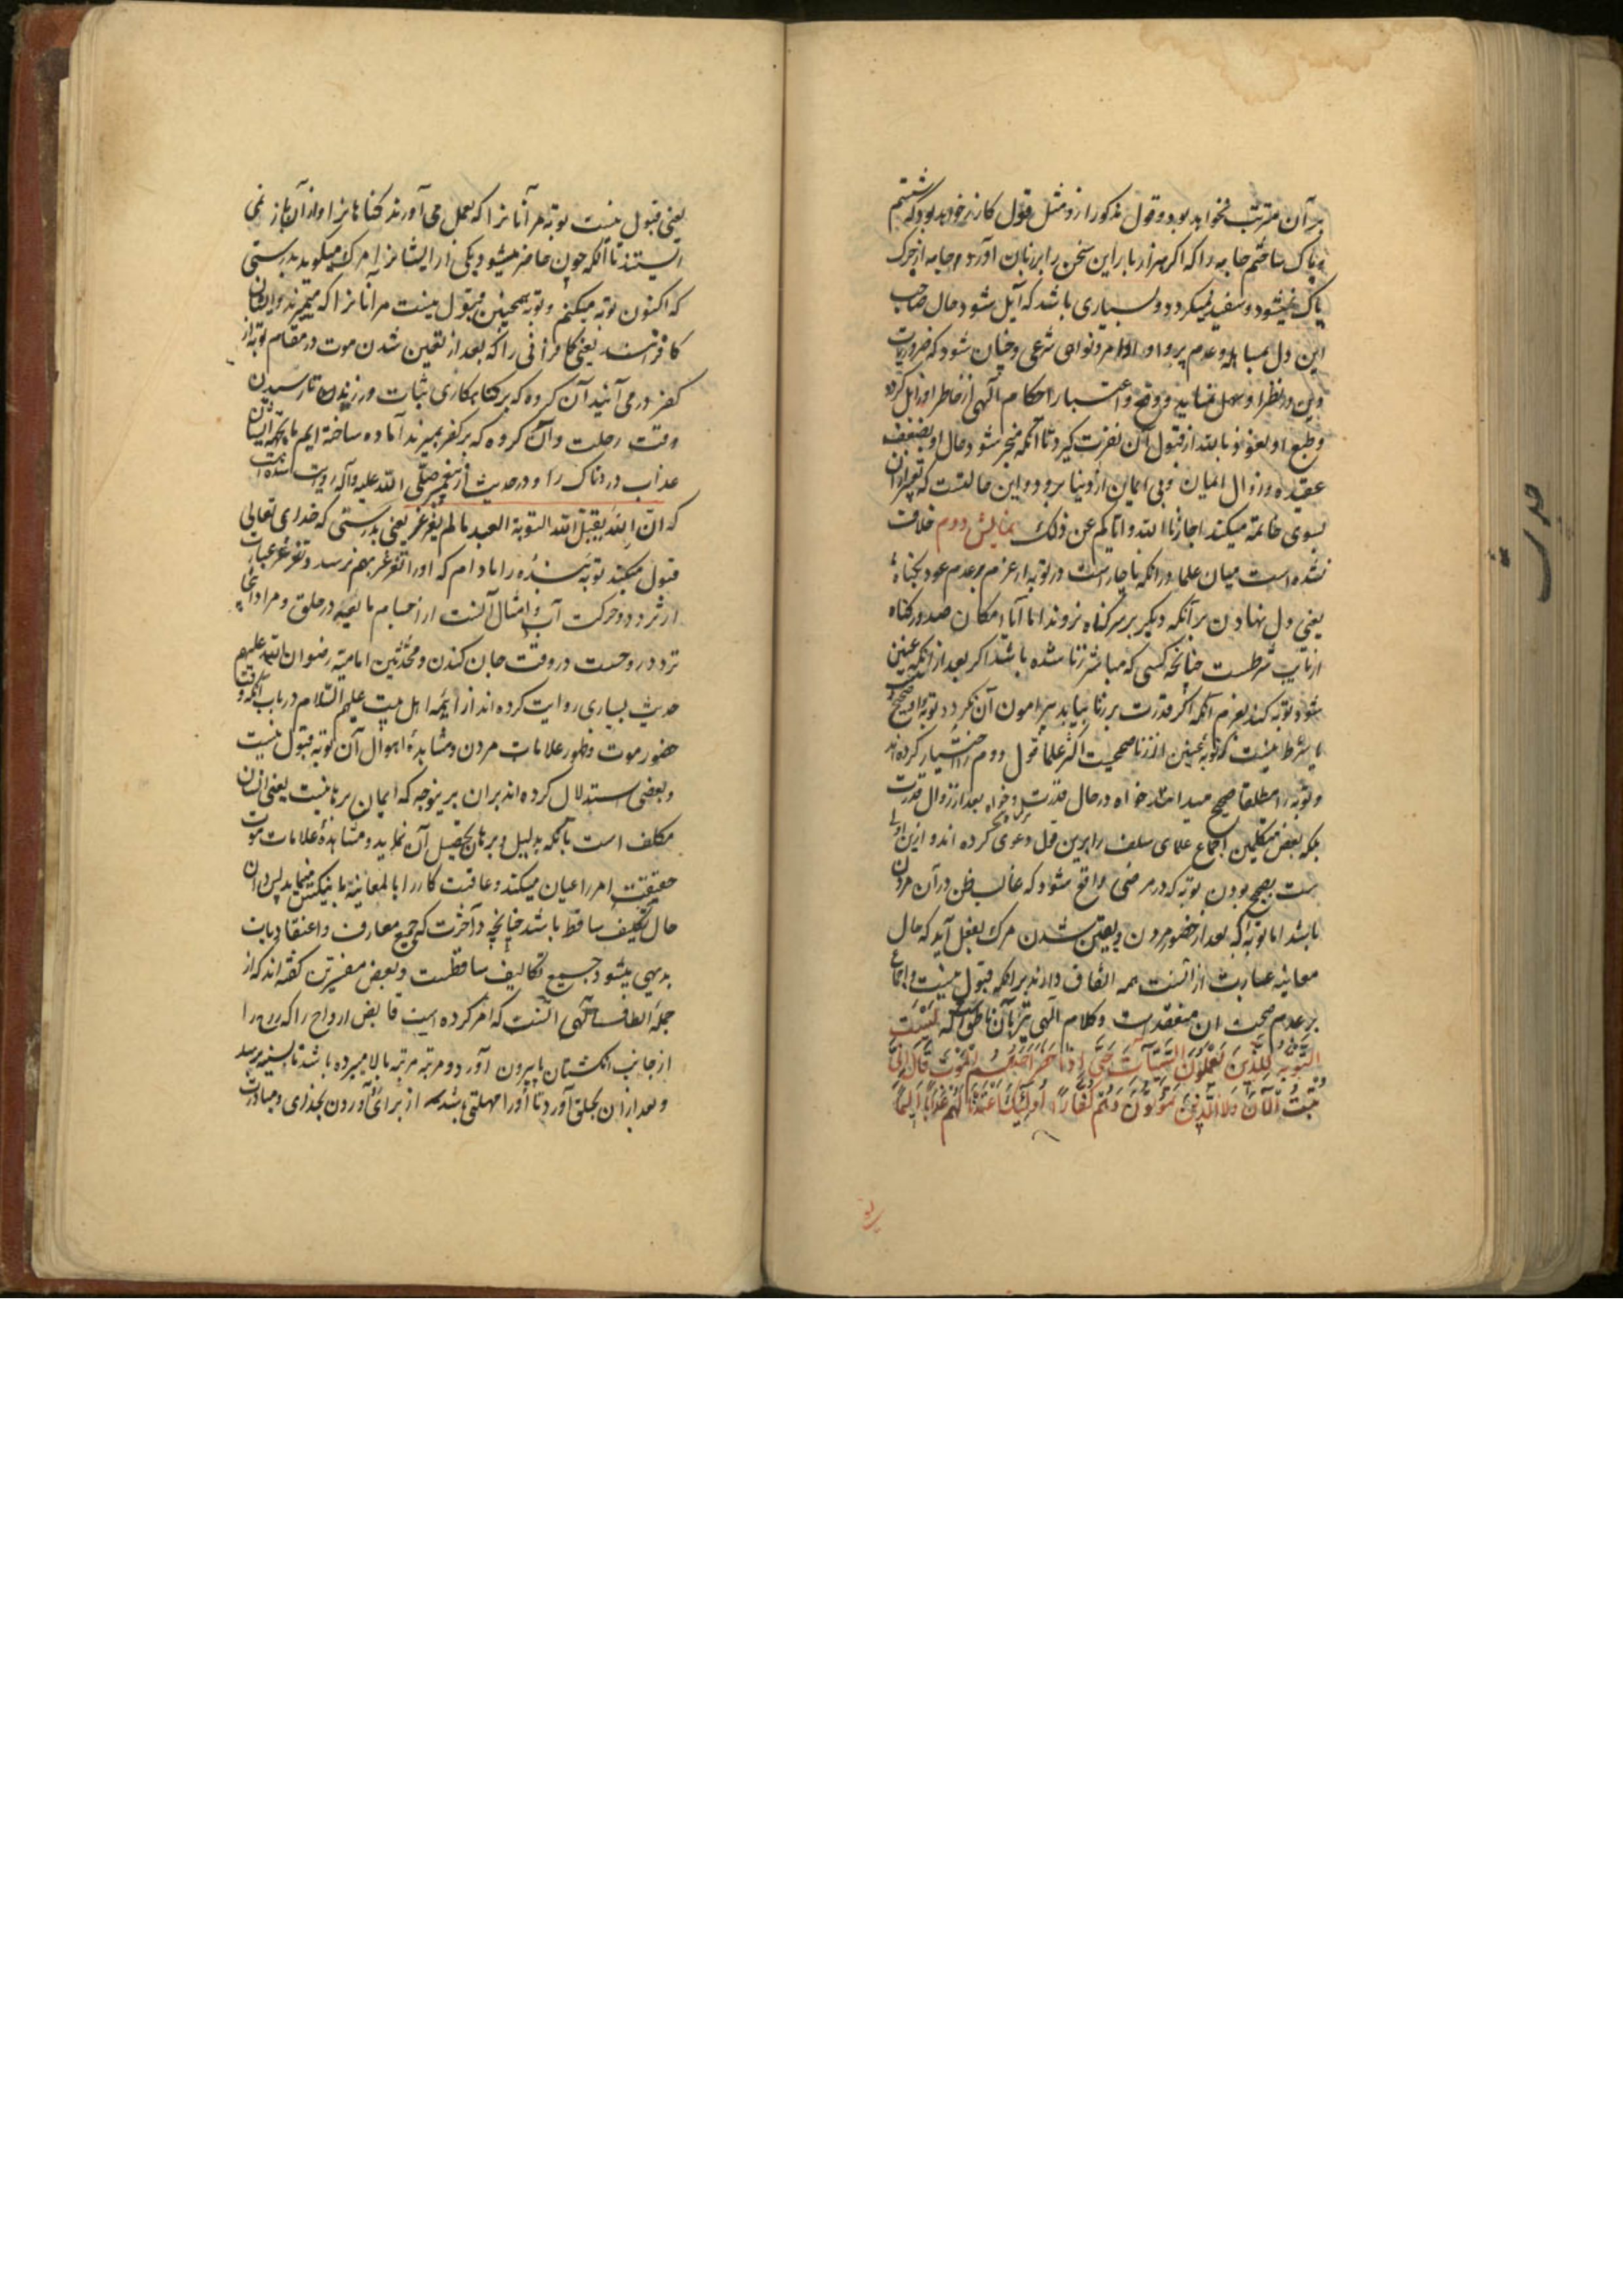 بر آن مترتب نخواهد بود و قول مذکور ازو مثل قول کازر خواهد بود که شستم
و پاک ساختم جامه را که اگر هزار بار این سخن را بر زبان آورد جامه از چرک
پاک نمیشود و سفید نمیگردد و بسیاری باشد که آیل شود حال صاحب
این دل بمبالاه و عدم پروا در اوامر و نواهی شرعی و چنان شود که ضروریات
دین در نظر او سهل نماید و وقع و اعتبار احکام الهی از خاطر او زایل گردد
و طبع او نعوذ بالله از قبول آن نفرت گیرد تا آنکه منجر شود حال او بضعف
عقیده و زوال ایمان و بی ایمان از دنیا برود و این حالتست که تعبیر از آن
بسوی خاتمه میکنند اجارنا الله و ایاکم عن ذلک نمایش دوم خلافت
نشده است میان علما در آنکه ناچار است در توبه از عزم بر عدم عود بگناه
یعنی دل نهادن بر آنکه دیگر بر سر گناه نروند اما آیا امکان صدور گناه
از تایب شرطست چنانچه کسی که مباشر زنا شده باشد اگر بعد از آنکه عنین
شود توبه کند بعزم آنکه اگر قدرت بر زنا بیابد پیرامون آن نگردد توبه او صحیح
یا شرط نیست که توبه عنین از زنا صحیحست اکثر علما قول دوم را اختیار کرده اند
و توبه را مطلقا صحیح میدانند خواه در حال قدرت و خواه بعد از زوال قدرت
بلکه بعض متکلمین اجماع علمای سلف را برین قول دعوی کرده اند و ازین اولی
است بصحیح بودن توبه که در مرضی واقع شود که غالب ظن در آن مردن
باشد اما توبه که بعد از حضور مردن و یقین شدن مرگ بفعل آید که حال
معاینه عبارت از آنست همه اتفاق دارند بر آنکه قبول نیست و اجماع
بر عدم صحت آن منعقدست و کلام الهی نیز بآن ناطق است که لَیْسَتِ
التَّوْبَةُ لِلَّذِینَ یَعْمَلُونَ السَّیِّئَاتِ حَتَّی إِذَا حَضَرَ أَحَدَهُمُ الْمَوْتُ قَالَ إِنِّی
تُبْتُ الْآنَ وَلَا الَّذِینَ یَمُوتُونَ وَهُمْ کُفَّارٌ أُولَئِکَ أَعْتَدْنَا لَهُمْ عَذَابًا أَلِیمًا
یعنی قبول نیست توبه مر آنانرا که بعمل می آورند گناهانرا و از آن باز نمی
ایستند تا آنکه چون حاضر میشود یکی از ایشانرا مرگ میگوید بدرستی
که اکنون توبه میکنم و توبه همچنین قبول نیست مر آنانرا که میمیرند و ایشان
کافرانند یعنی کافرانی را که بعد از یقین شدن موت در مقام توبه از
کفر در می آیند آن گروه که بر گناهکاری ثبات ورزیده تا رسیدن
وقت رحلت و آن گروه که بر کفر بمیرند آماده ساخته ایم ما بجهة ایشان
عذاب دردناک را و در حدیث از پیغمبر صلی الله علیه و آله روایت شده است
که ان الله یقبل الله التوبة العبد ما لم یغرغر یعنی بدرستی که خدای تعالی
قبول میکند توبه بنده را مادام که او را تغرغر بهم نرسد و تغرغر عبارت
از تردد و حرکت آب و امثال آنست از اجسام مایعه در حلق و مراد اینجا
تردد روحست در وقت جان کندن و محدثین امامیه رضوان الله علیهم
حدیث بسیاری روایت کرده اند از ایمه اهل بیت علیهم السلام در باب آنکه وقت
حضور موت و ظهور علامات مردن و مشاهده اهوال آن توبه قبول نیست
و بعضی استدلال کرده اند بر آن برینوجه که ایمان برنا نیست یعنی انسان
مکلف است بآنکه بدلیل و برهان تحصیل آن نماید و مشاهده علامات موت
حقیقت امر را عیان میکند و عاقبت کار را بالمعاینه باینکس مینماید پس در آن
حال تکلیف ساقط باشد چنانچه در آخرت که جمیع معارف و اعتقادیات
بدیهی میشود جمیع تکالیف ساقطست و بعض مفسرین گفته اند که از
جمله الطاف الهی آنست که امر کرده است قابض ارواح را که روح را
از جانب انگشتان پا بیرون آورد و مرتبه مرتبه بالا میبرده باشد تا بسینه برسد
و بعد از آن بحلق آورد تا او را مهلتی باشد از برای رو آوردن بخدای و مبادرت